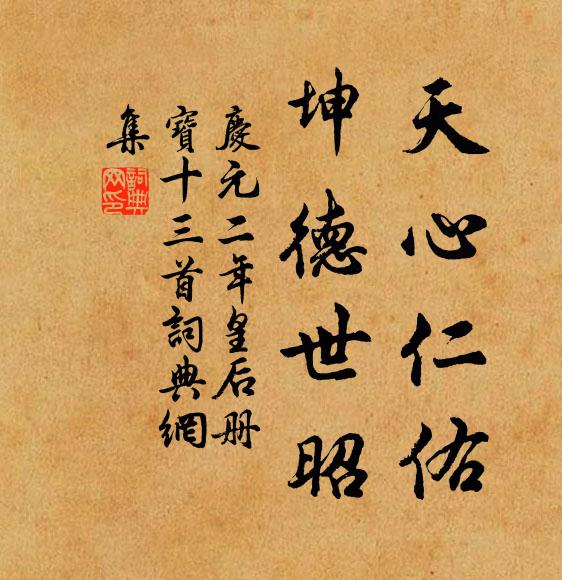 天心仁佑
坤德世昭
慶元二年皇后册
寶十三首詞典網
集
詞典
網印